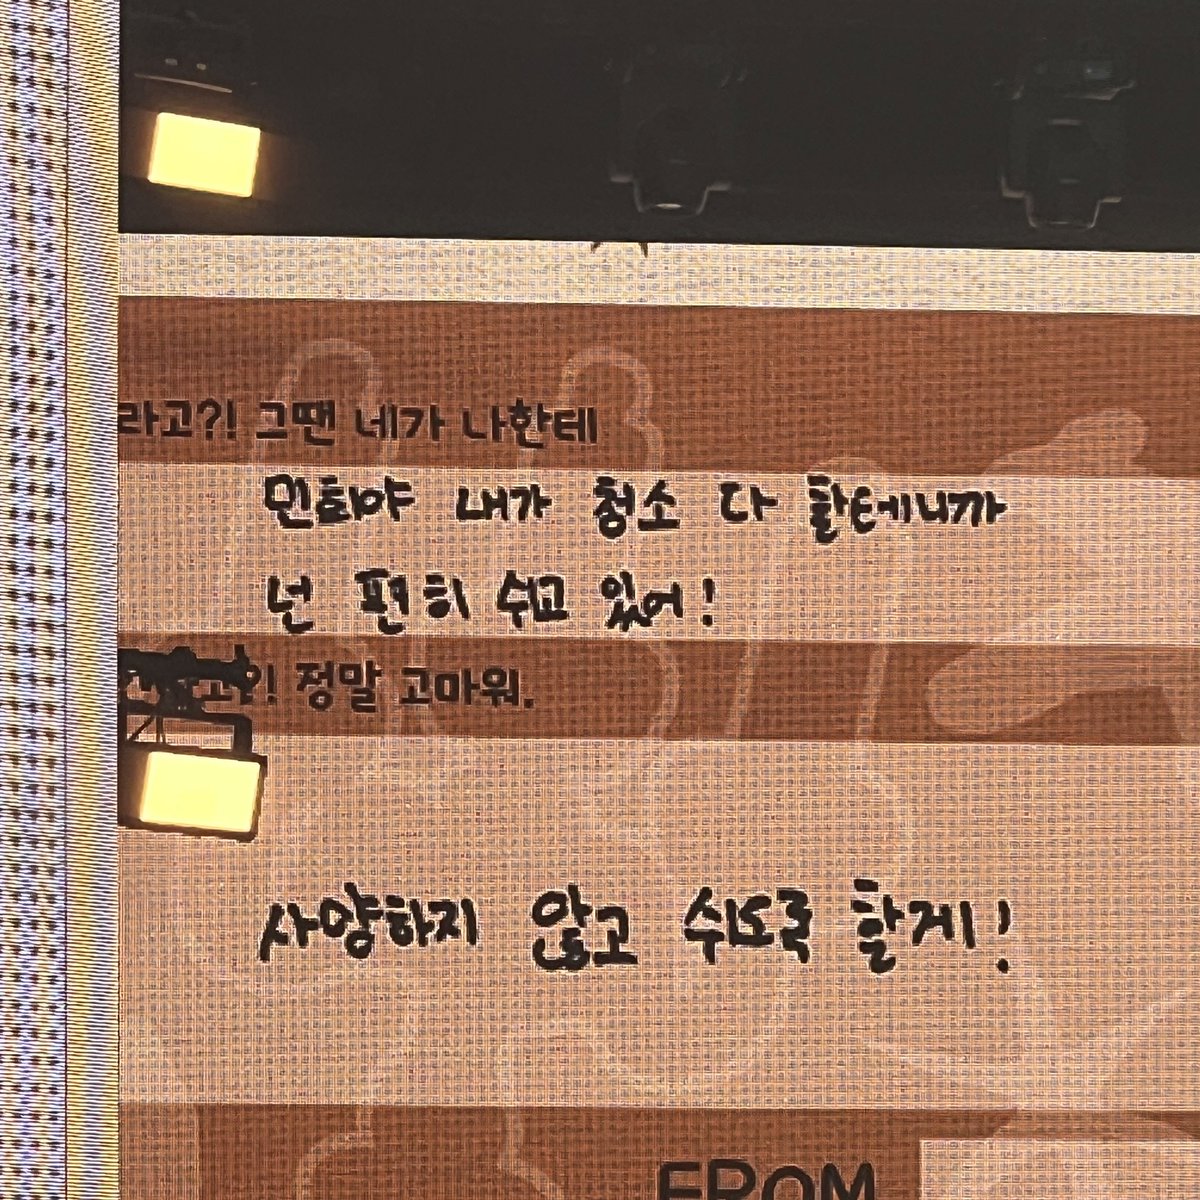 라고?! 그땐 네가 나한테
민희야 내가 청소 다 할테니까
넌 편히 쉬고 있어!
정말 고마워.
사양하지 않고 쉬도록 할게!
FROM